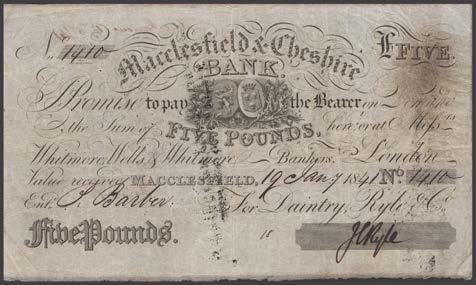 No. 1410
Macclesfield & Cheshire
£FIVE.
BANK.
I Promise to pay the Bearer on Demand
the Sum of FIVE POUNDS. here or at Messrs
Whitmore, Wells & Whitmore Bankers, London
Value received MACCLESFIELD, 19 Jany 1841 No 1410
Entd. J. Barber For Daintry, Ryle & Co.
Five Pounds. 18 JCRyle